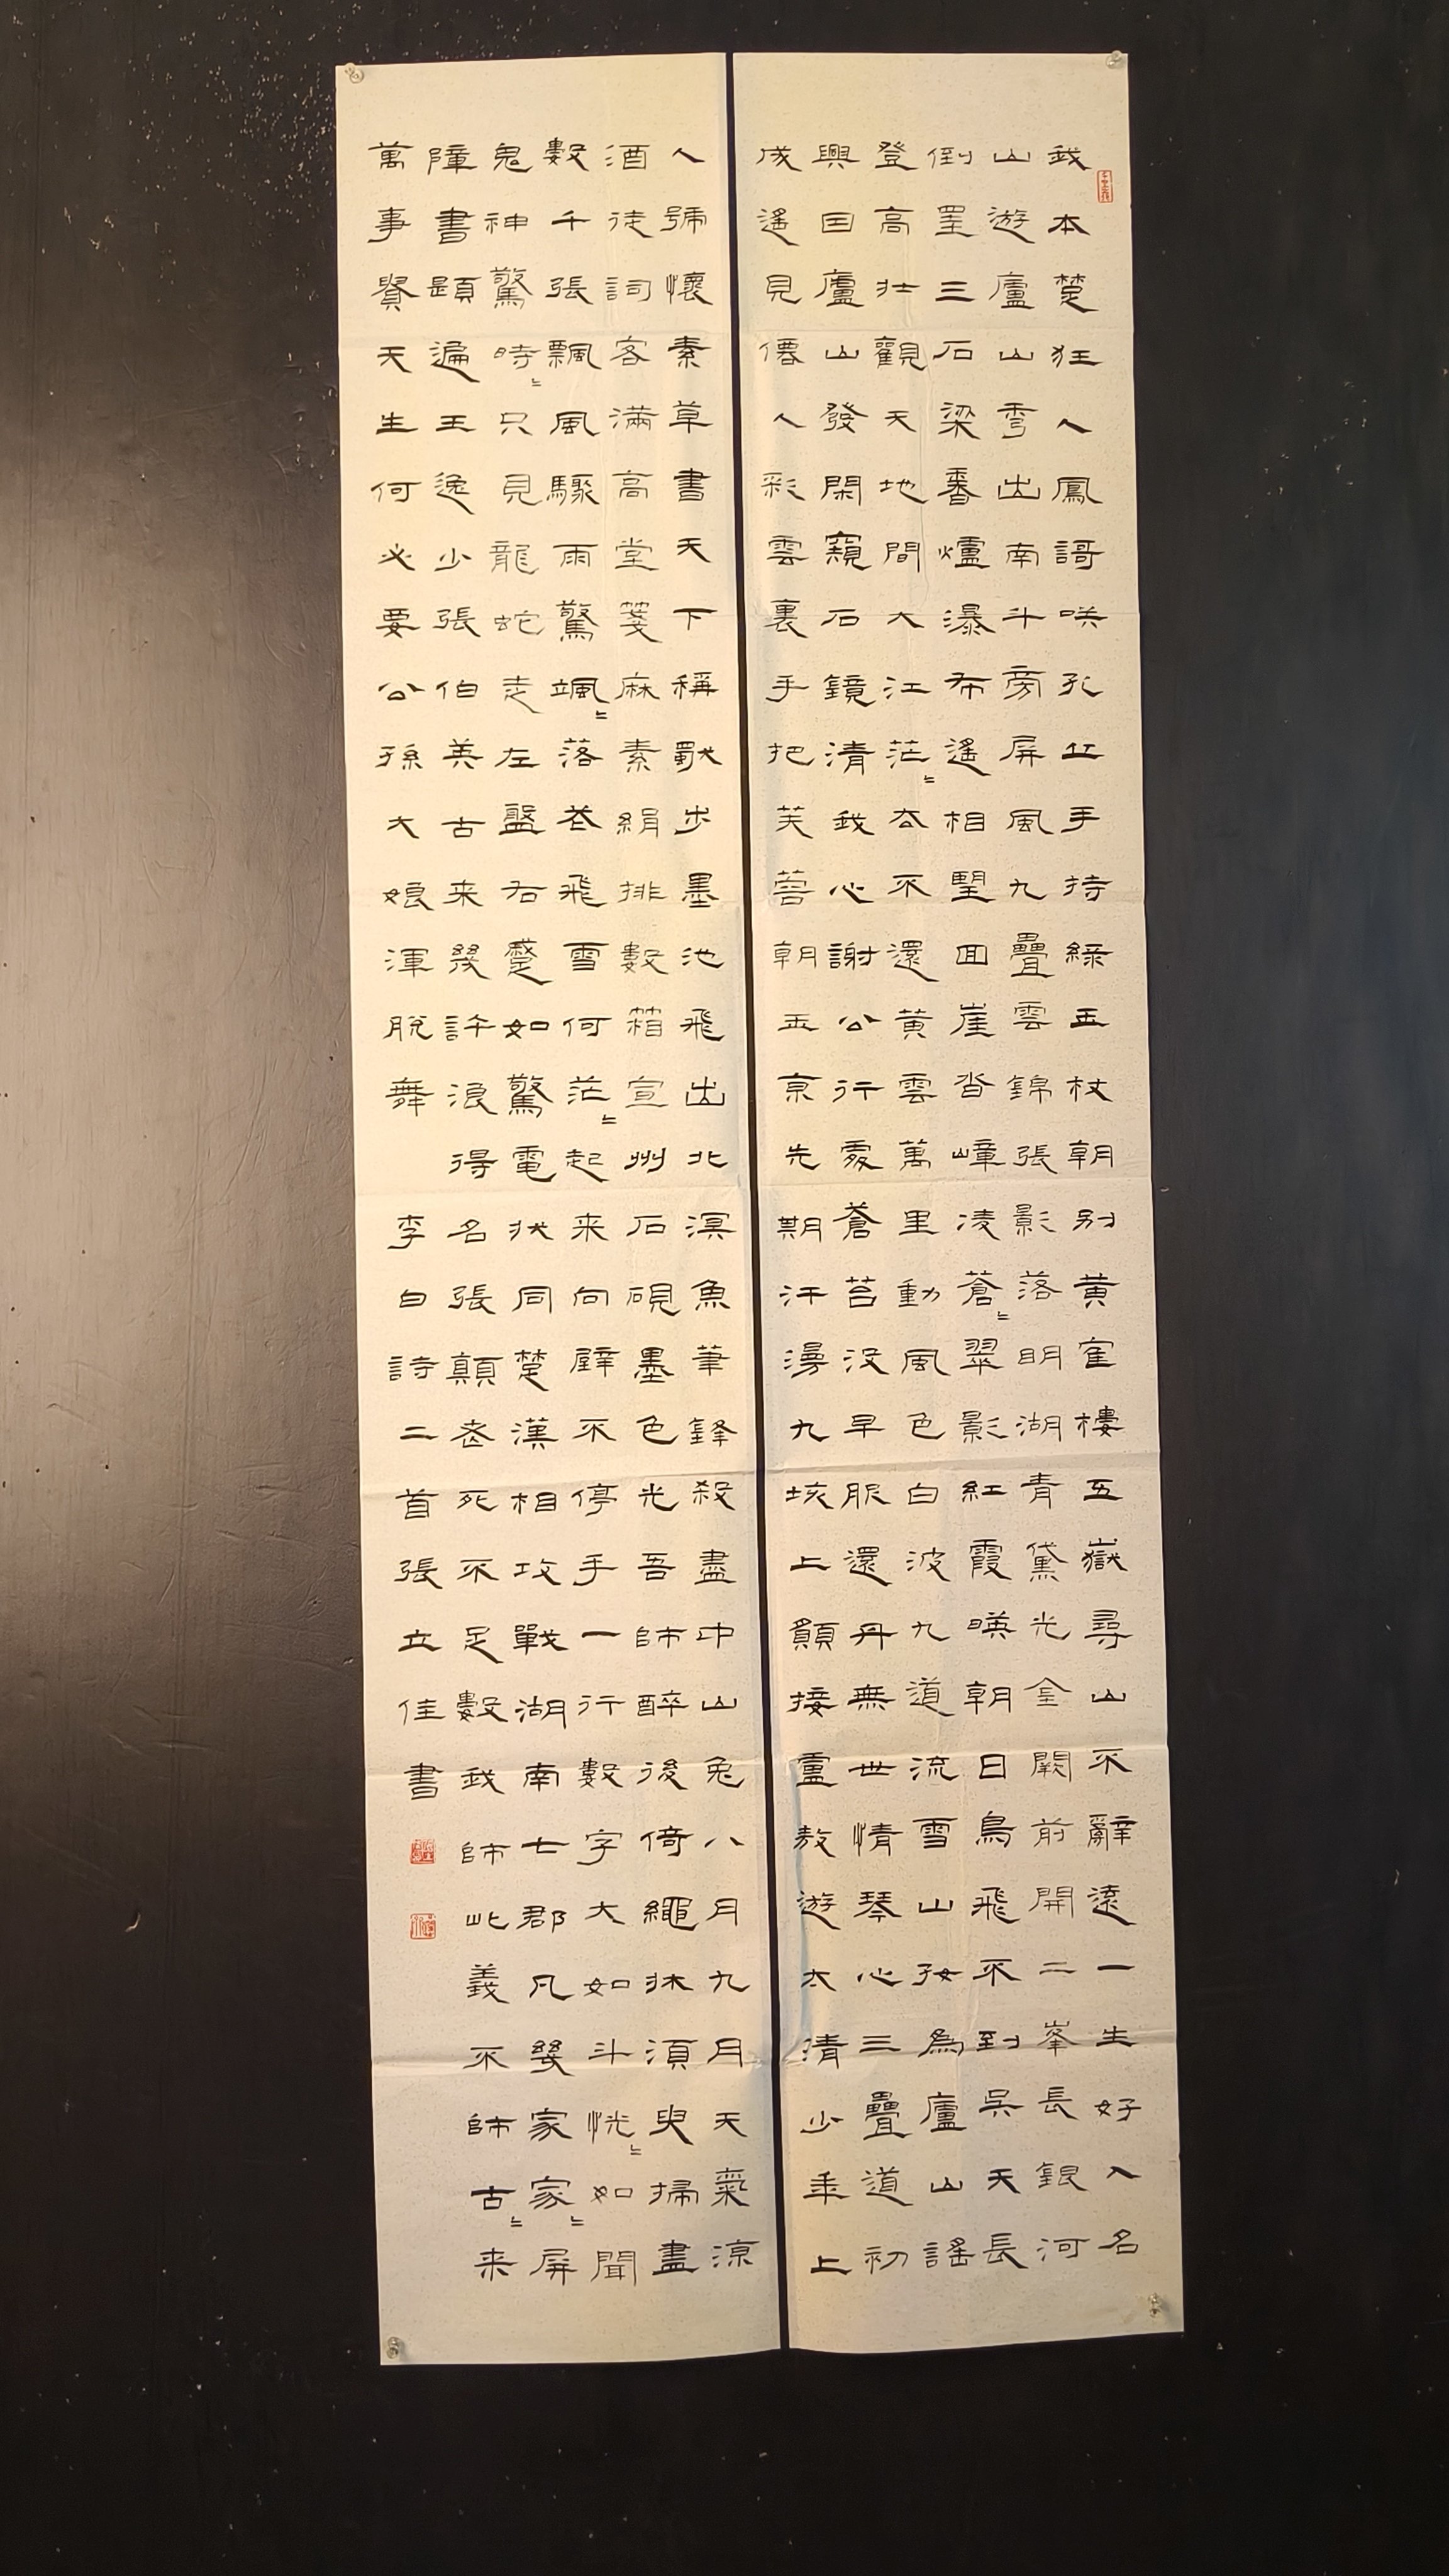 我本楚狂人鳳謌咲孔丘手持綠玉杖朝別黄寉樓五嶽尋山不辭遠一生好入名
山遊廬山秀出南斗旁屏風九疊雲錦張影落明湖青黛光金闕前開二峯長銀河
倒罣三石梁香爐瀑布遙相望回崖沓嶂凌蒼〻翠影紅霞暎朝日鳥飛不到吳天長
登高壯觀天地間大江茫〻去不還黄雲萬里動風色白波九道流雪山好為廬山謠
興因廬山發閑窺石鏡清我心謝公行處蒼苔没早服還丹無世情琴心三疊道初
成遙見僊人彩雲裏手把芙蓉朝玉京先期汗漫九垓上願接盧敖遊太清少年上
人號懷素草書天下稱獨步墨池飛出北溟魚筆鋒殺盡中山兔八月九月天氣涼
酒徒詞客滿高堂箋麻素絹排數箱宣州石硯墨色光吾師醉後倚繩牀須臾掃盡
數千張飄風驟雨驚颯〻落花飛雪何茫〻起来向壁不停手一行數字大如斗恍〻如聞
鬼神驚時〻只見龍蛇走左盤右蹙如驚電狀同楚漢相攻戰湖南七郡凡幾家家〻屏
障書題遍王逸少張伯英古来幾許浪得名張顛老死不足數我師此義不師古〻来
萬事貴天生何必要公孫大娘渾脱舞 李白詩二首張立佳書